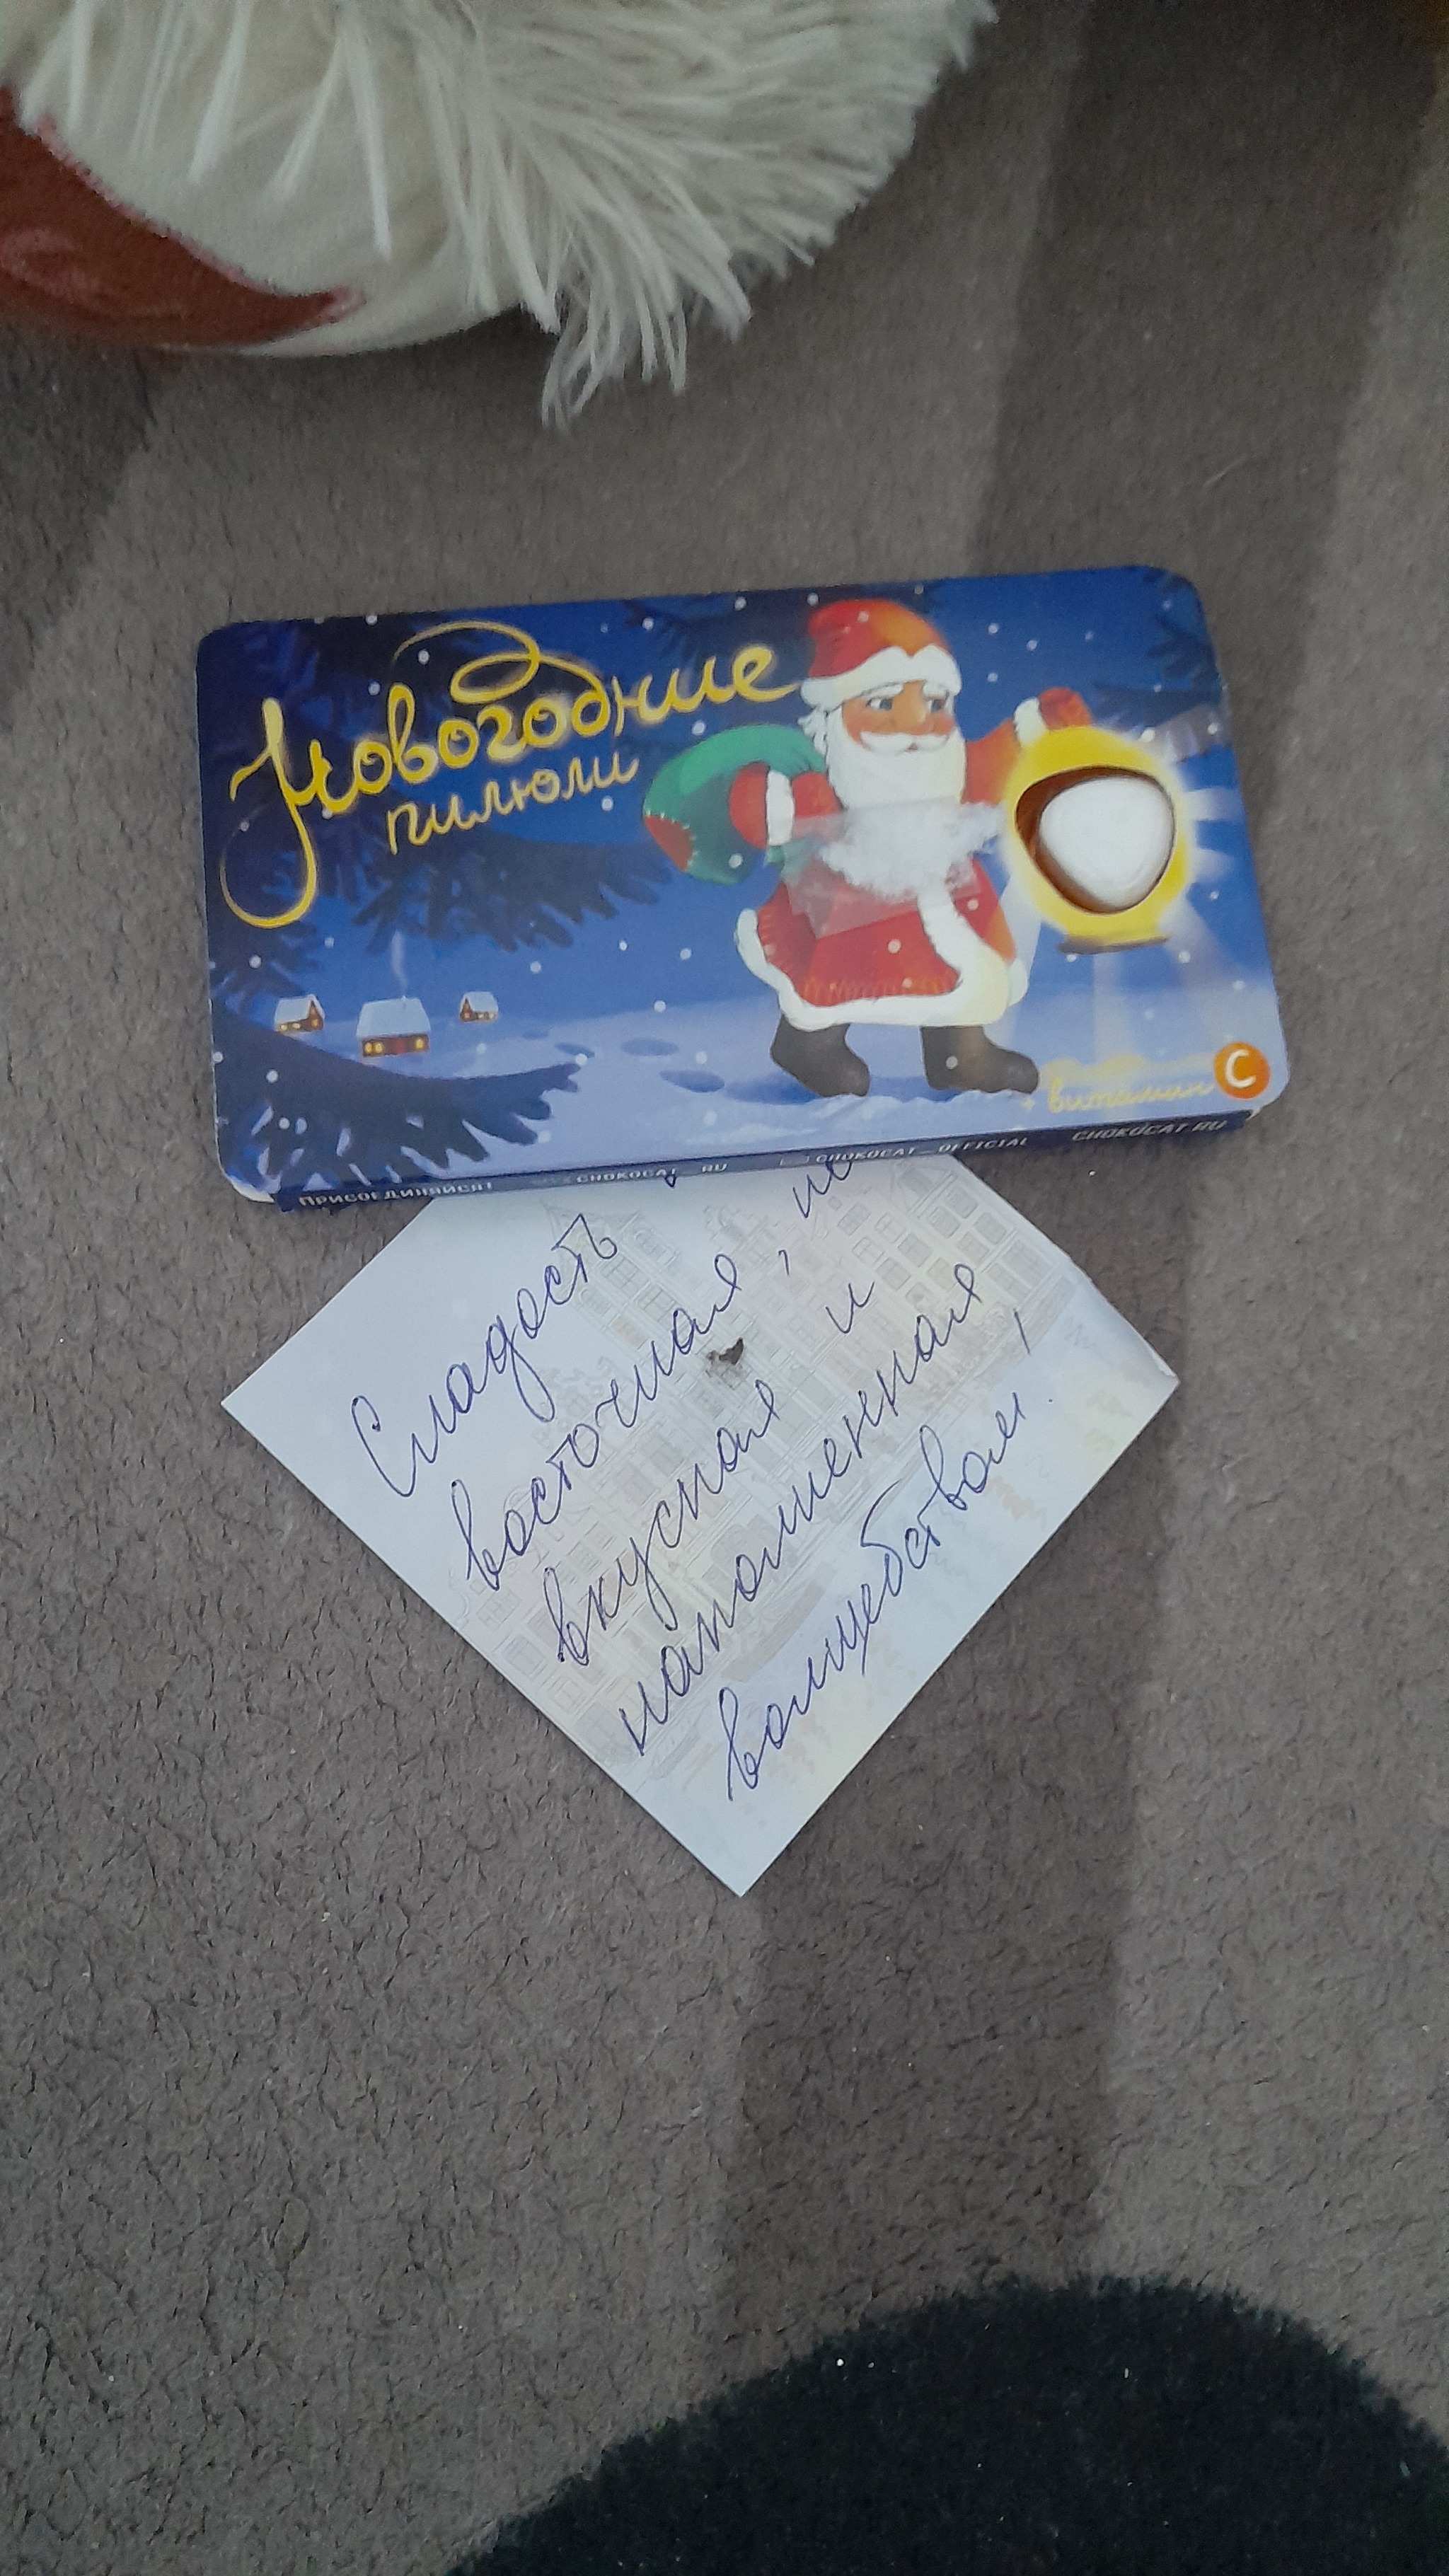 Новогодние
пилюли
+ витамин C
ПРИСОЕДИНЯЙСЯ! CHOKOCAT_RU CHOKOCAT_OFFICIAL CHOKOCAT.RU
Сладость
восточная, но
вкусная и
наполненная
волшебством!